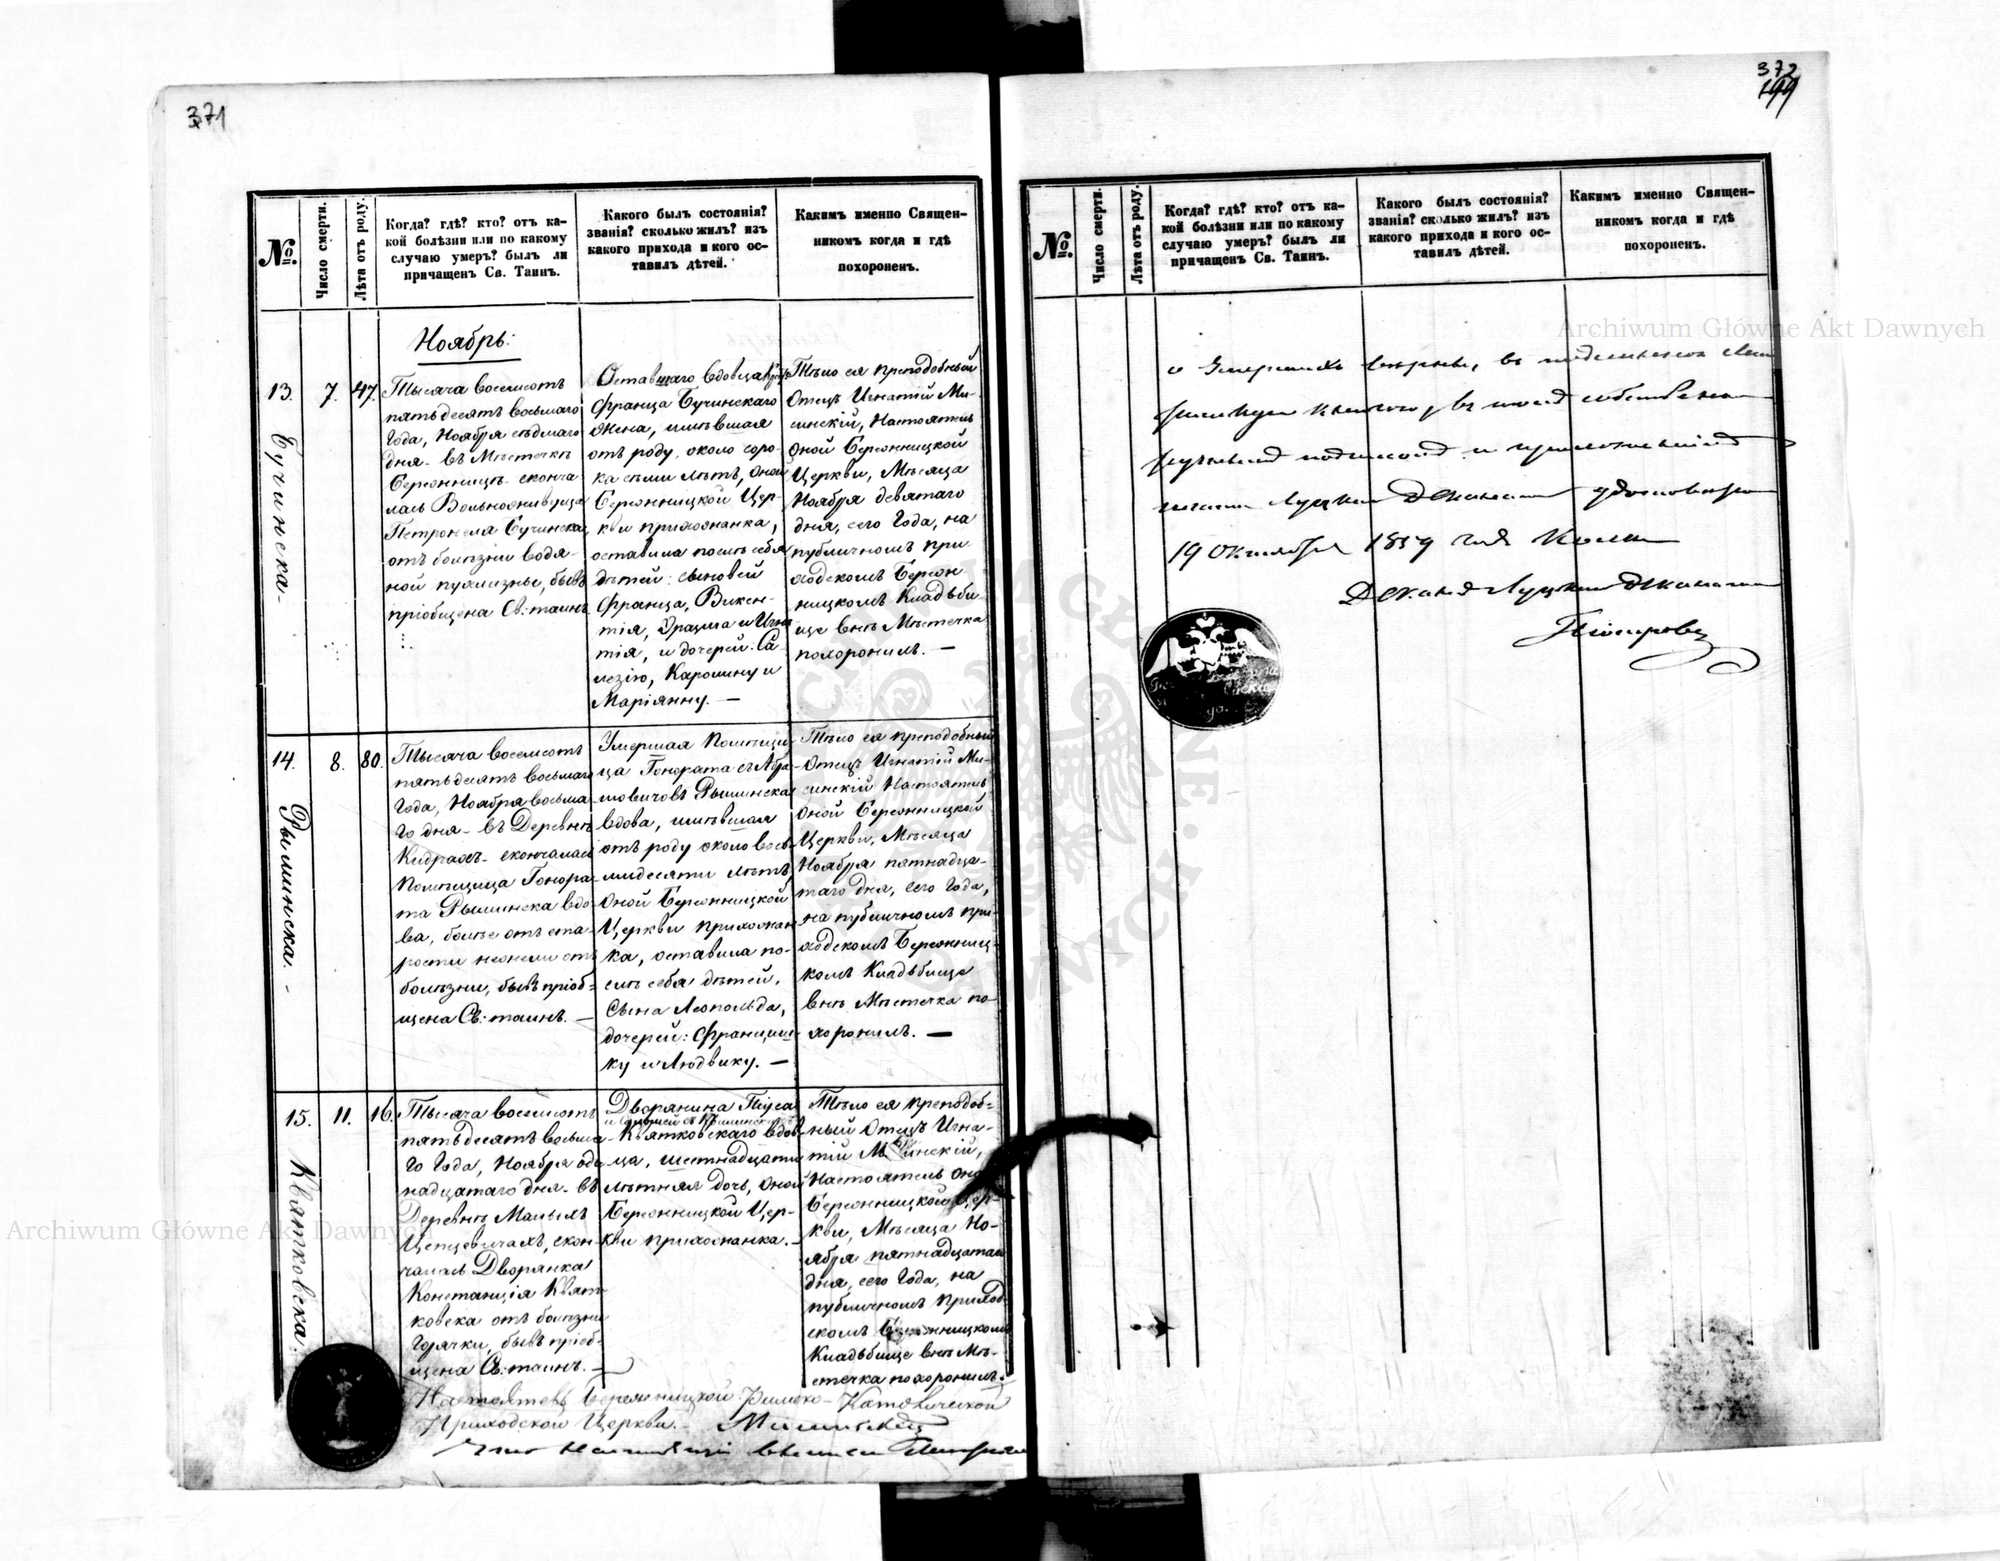 371
№
Число смерти.
Лѣта отъ роду.
Когда? гдѣ? кто? отъ ка-
кой болѣзни или по какому
случаю умеръ? былъ ли
причащенъ Св. Таинъ.
Какого былъ состоянія?
званія? сколько жилъ? изъ
какого прихода и кого ос-
тавилъ дѣтей.
Какимъ именно Священ-
никомъ когда и гдѣ
похороненъ.
Ноябрь:
13.
Бучинска
7.
47.
Тысяча восемсотъ
пятьдесятъ восьмаго
Года, Ноября седмаго
дня - въ Мѣстечкѣ
Бережницѣ сконча
лась Вольноживуща
Петронеля Бучинска
отъ болѣзни водя-
ной пухлизны, бывъ
пріобщена Св: таинъ.
Оставшаго вдовца
Франца Бучинскаго
жена, имѣвшая
отъ роду около соро-
ка семи лѣтъ, оной
Бережницкой Цер-
кви прихожанка,
оставила послѣ себя
дѣтей: сыновей
Франца, Викен-
тія, Эразма и Игна
тія, и дочерей: Са
лезію, Каролину и
Маріянну. —
Тѣло ея преподобный
Отецъ Игнатій Ми-
синскій, Настоятель
оной Бережницкой
Церкви, Мѣсяца
Ноября девятаго
дня, сего Года, на
публичномъ при-
ходскомъ Береж
ницкомъ Кладьби-
ще внѣ Мѣстечка
похоронилъ. —
14.
Рышинска.
8.
80.
Тысяча восемсотъ
пятьдесятъ восьмаго
Года, Ноября восьма
го дня - въ Деревнѣ
Кидрахъ - скончалась
Помѣщица Гонора-
та Рышинска вдо-
ва, болѣе отъ ста-
рости нежели отъ
болѣзни, бывъ пріоб-
щена Св: таинъ. —
Умершая Помѣщи-
ца Гонората съ Абра-
мовичовъ Рышинска
вдова, имѣвшая
отъ роду около вось-
мидесяти лѣтъ,
оной Бережницкой
Церкви прихожан
ка, оставила по-
слѣ себя дѣтей,
Сына Леопольда,
дочерей: Францишку
ку и Людвику. —
Тѣло ея преподобный
Отецъ Игнатій Ми-
синскій Настоятель
оной Бережницкой
Церкви, Мѣсяца
Ноября пятнадца-
таго дня, сего Года,
на публичномъ при-
ходскомъ Бережниц-
комъ Кладьбище
внѣ Мѣстечка по-
хоронилъ. —
15.
Квятковска.
11.
16.
Тысяча восемсотъ
пятьдесятъ восьма-
го Года, Ноября оди
надцатаго дня - въ
Деревнѣ Малыхъ
Цепцевичахъ, скон-
чалась Дворянка
Констанція Квят-
ковска отъ болѣзни
горячки, бывъ пріоб-
щена Св: таинъ. —
Дворянина Піуса
Квятковскаго вдов-
ца, шестнадцати
лѣтняя дочь, оной
Бережницкой Цер-
кви прихожанка. —
Тѣло ея преподоб-
ный Отецъ Игна-
тій Мисинскій,
Настоятель оной
Бережницкой Цер-
кви, Мѣсяца Но-
ября пятнадцатаго
дня, сего Года, на
публичномъ приход-
скомъ Бережницкомъ
Кладьбище внѣ Мѣ-
стечка похоронилъ.
Настоятель Бережницкой Римско-Католической
Приходской Церкви.
372
199
№
Число смерти.
Лѣта отъ роду.
Когда? гдѣ? кто? отъ ка-
кой болѣзни или по какому
случаю умеръ? былъ ли
причащенъ Св. Таинъ.
Какого былъ состоянія?
званія? сколько жилъ? изъ
какого прихода и кого ос-
тавилъ дѣтей.
Какимъ именно Священ-
никомъ когда и гдѣ
похороненъ.
о Умершихъ
19 Октября 1859 года
Деканъ Луцкій
Archiwum Główne Akt Dawnych
Archiwum Główne Akt Dawnych